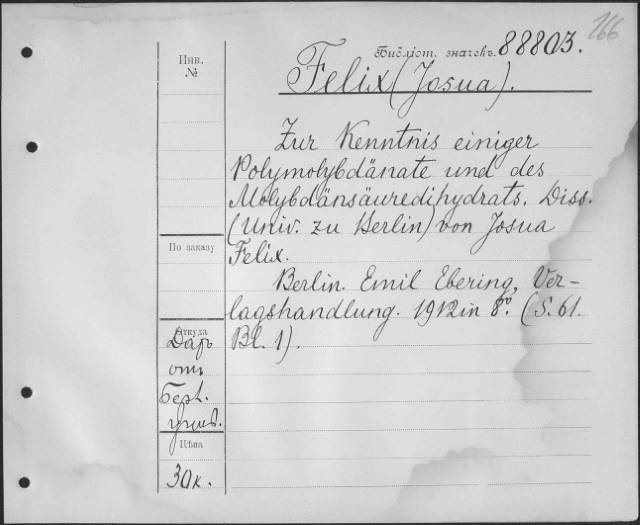 166
Библіот. значекъ. 88803.
Felix (Josua).
Инв.
№
Zur Kenntnis einiger
Polymolybdänate und des
Molybdänsäuredihydrats. Diss.
(Univ. zu Berlin) von Josua
Felix.
По заказу
Berlin. Emil Ebering, Ver-
lagshandlung. 1912 in 8º. (S. 61.
Bl. 1).
Откуда
Даръ
отъ
Берл.
унив.
Цѣна
30 к.